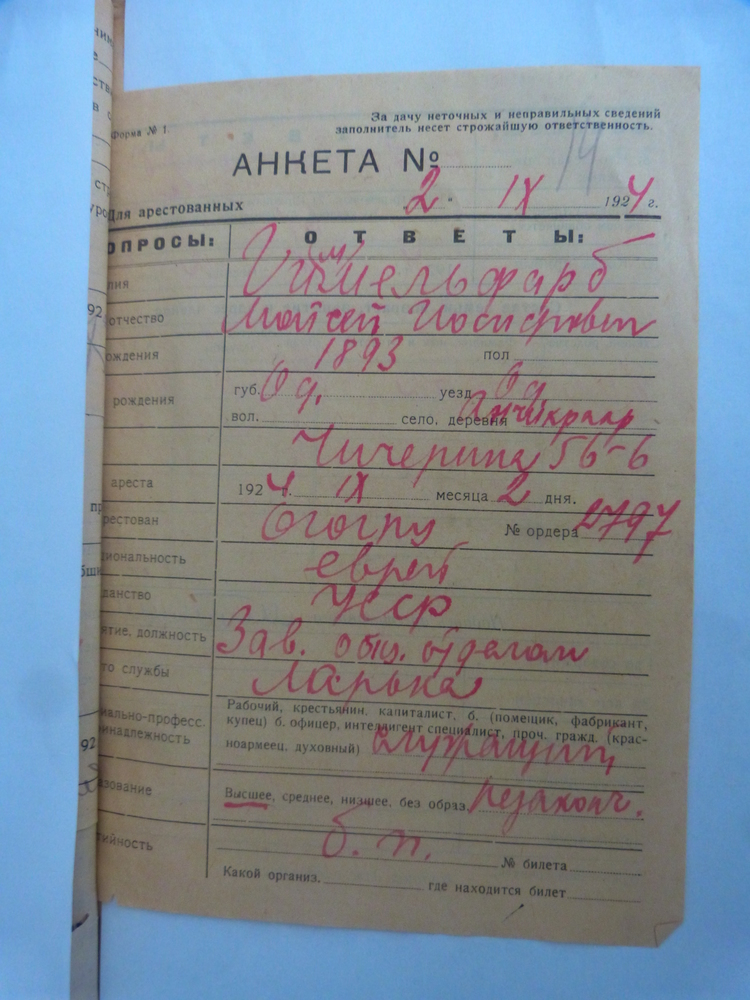 Форма № 1.
За дачу неточных и неправильных сведений
заполнитель несет строжайшую ответственность.
14
АНКЕТА №
Для арестованных 2. IX 1924 г.
ОПРОСЫ: ОТВЕТЫ:
лия (м) Гиммельфарб
отчество Мойсей Иосифович
ождения 1893 пол
рождения губ. Од. уезд Од
вол. село, деревня
Чичерина 56-6
ареста 1924 г. IX месяца 2 дня.
рестован Огогпу № ордера 2797
циональность еврей
данство УССР
ятие, должность Зав. общ. отделом
то службы Ларька
иально-професс. Рабочий, крестьянин, капиталист, б. (помещик, фабрикант,
инадлежность купец) б. офицер, интеллигент специалист, проч. гражд. (крас-
ноармеец, духовный) служащий
азование Высшее, среднее, низшее, без образ. незаконч.
тийность б. п. № билета
Какой организ. где находится билет